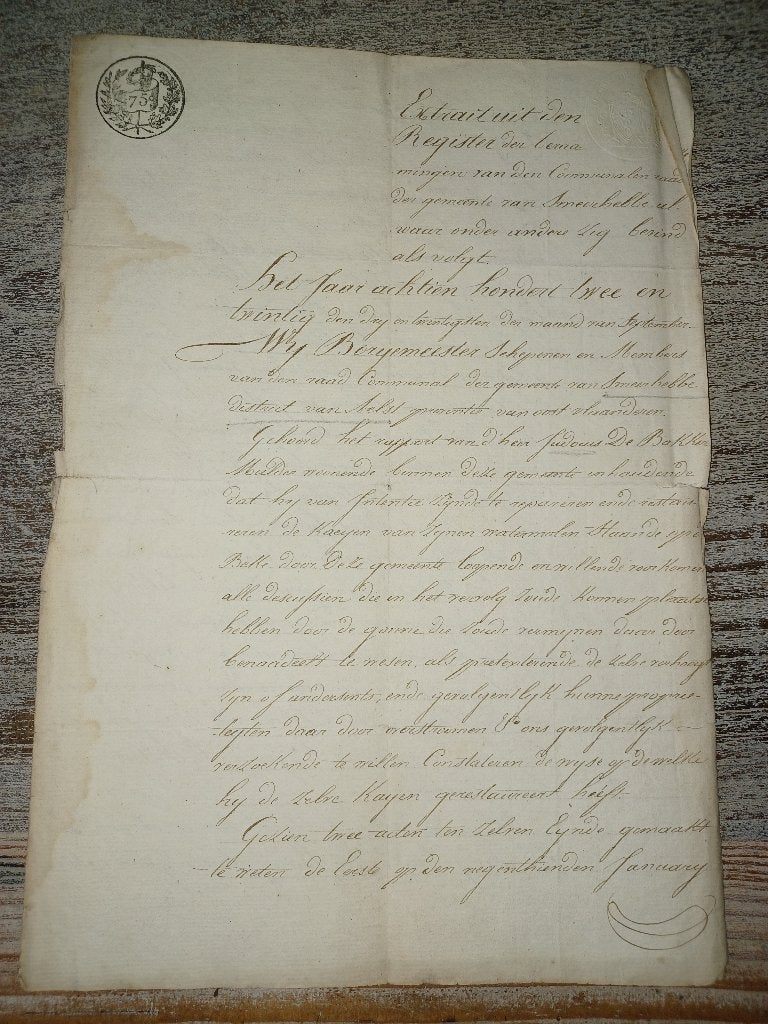 75
Extrait uit den
Register der beraa
mingen van den Communalen raad
der gemeente van Smeerhebbe al
waar onder andere zig bevind
als volgt.
Het Jaar achtien hondert twee en
twintig den dry en twentigsten der maand van September
Wy Borgemeester Schepenen en Members
van den raad Communal der gemeente van Smeerhebbe
district van Aelst provontie van oost vlaanderen.
Gehoord het rapport van d'heer Judocus De Bakker
Mulder woonende binnen deze gemeente inhoudende
dat hy van Intentie zynde te repareren ende restau-
reren de Kaeyen van zynen watermolen staande op de
Beke door deze gemeente loopende en willende voorkomen
alle discussien die in het vervolg zoude konnen plaats
hebben door de gonne die zoude vermynen daar door
benadeelt te wesen, als pretenterende de zelve verhoogt
zyn of andersints, ende gevolgentlyk hunne proprie-
teyten daar door overstroomen & ons gevolgentlyk
verzoekende te willen Constateren de wyse op de welke
hy de zelve Kayen gerestaureert heeft.
Gezien twee acten ten zelven Eynde gemaakt
te weten de Eerste op den negenthienden January